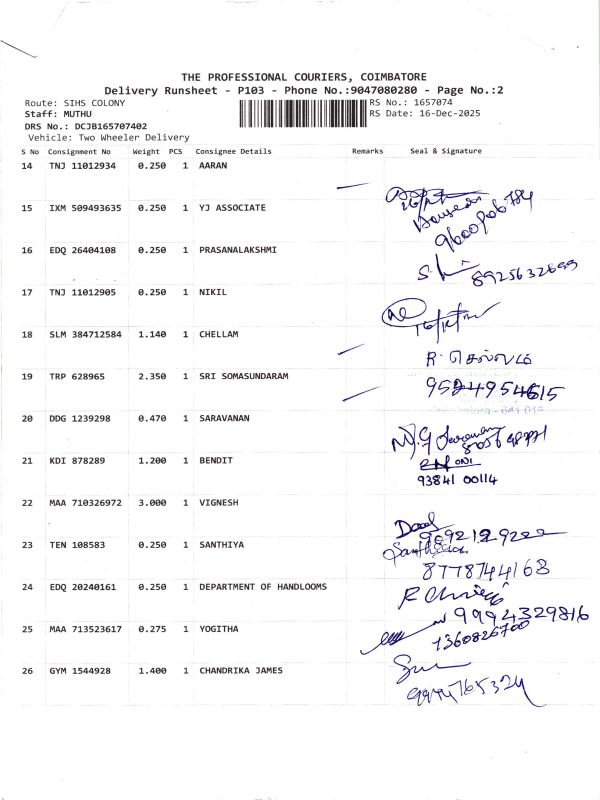 THE PROFESSIONAL COURIERS, COIMBATORE
Delivery Runsheet - P103 - Phone No.:9047080280 - Page No.:2
Route: SIHS COLONY
RS No.: 1657074
Staff: MUTHU
RS Date: 16-Dec-2025
DRS No.: DCJB165707402
Vehicle: Two Wheeler Delivery
S No Consignment No Weight PCS Consignee Details Remarks Seal & Signature
14 TNJ 11012934 0.250 1 AARAN
15 IXM 509493635 0.250 1 YJ ASSOCIATE
16 EDQ 26404108 0.250 1 PRASANALAKSHMI
8925632699
17 TNJ 11012905 0.250 1 NIKIL
18 SLM 384712584 1.140 1 CHELLAM
R. செல்லம்
19 TRP 628965 2.350 1 SRI SOMASUNDARAM
9524954615
20 DDG 1239298 0.470 1 SARAVANAN
21 KDI 878289 1.200 1 BENDIT
93841 00114
22 MAA 710326972 3.000 1 VIGNESH
23 TEN 108583 0.250 1 SANTHIYA
8778744168
24 EDQ 20240161 0.250 1 DEPARTMENT OF HANDLOOMS
9994329816
25 MAA 713523617 0.275 1 YOGITHA
1360826700
26 GYM 1544928 1.400 1 CHANDRIKA JAMES